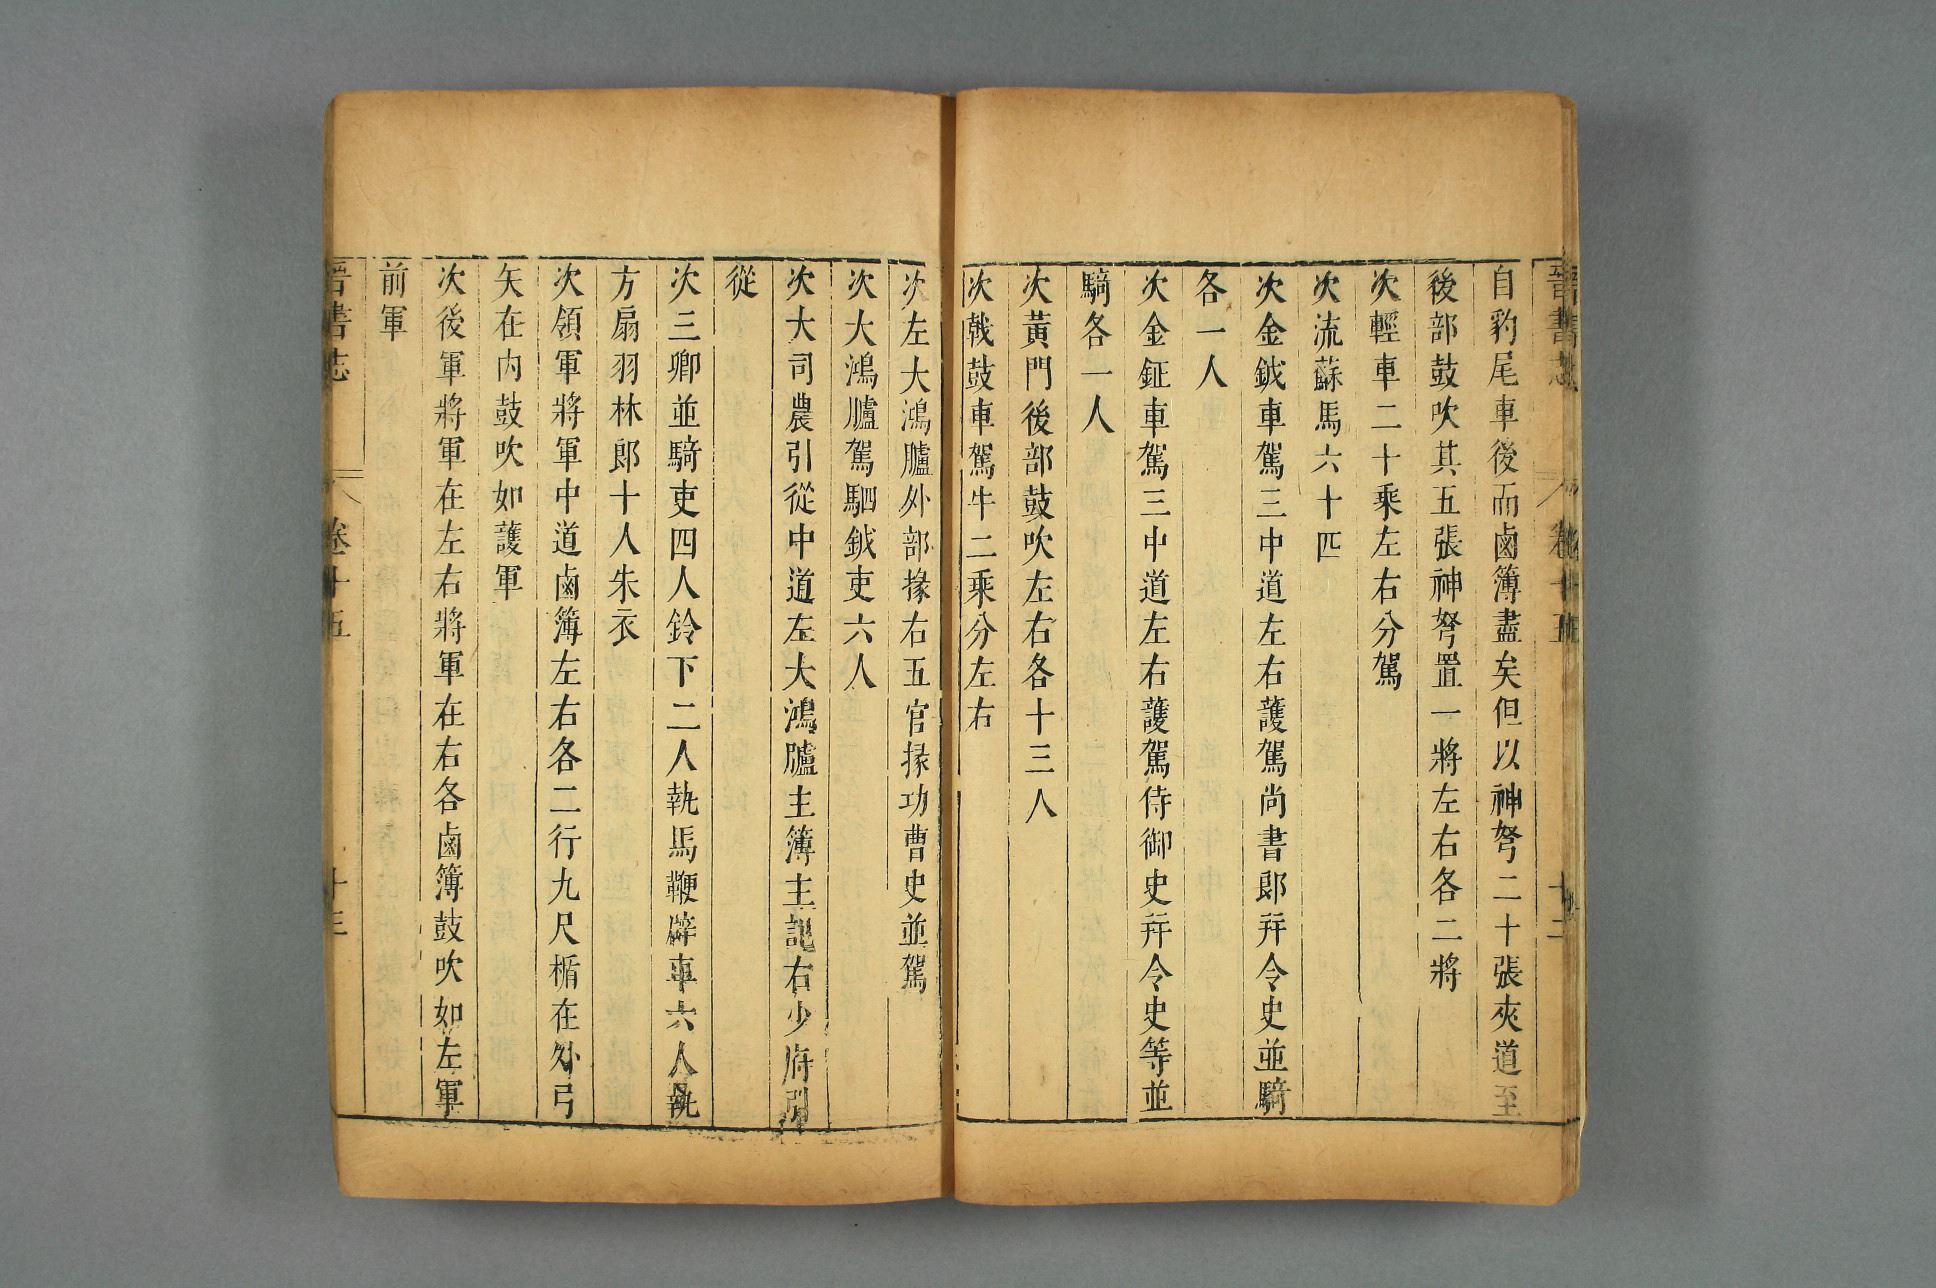 晉書志 卷十五 十二
自豹尾車後而鹵簿盡矣但以神弩二十張夾道至
後部鼓吹其五張神弩置一將左右各二將
次輕車二十乘左右分駕
次流蘇馬六十匹
次金鉞車駕三中道左右護駕尚書郎并令史並騎
各一人
次金鉦車駕三中道左右護駕侍御史并令史等並
騎各一人
次黃門後部鼓吹左右各十三人
次戟鼓車駕牛二乘分左右
次左大鴻臚外部掾右五官掾功曹史並駕
次大鴻臚駕駟鉞吏六人
次大司農引從中道左大鴻臚主簿主記右少府引
從
次三卿並騎吏四人鈴下二人執馬鞭辟車六人執
方扇羽林郎十人朱衣
次領軍將軍中道鹵簿左右各二行九尺楯在外弓
矢在內鼓吹如護軍
次後軍將軍在左右將軍在右各鹵簿鼓吹如左軍
前軍
晉書志 卷十五 十三